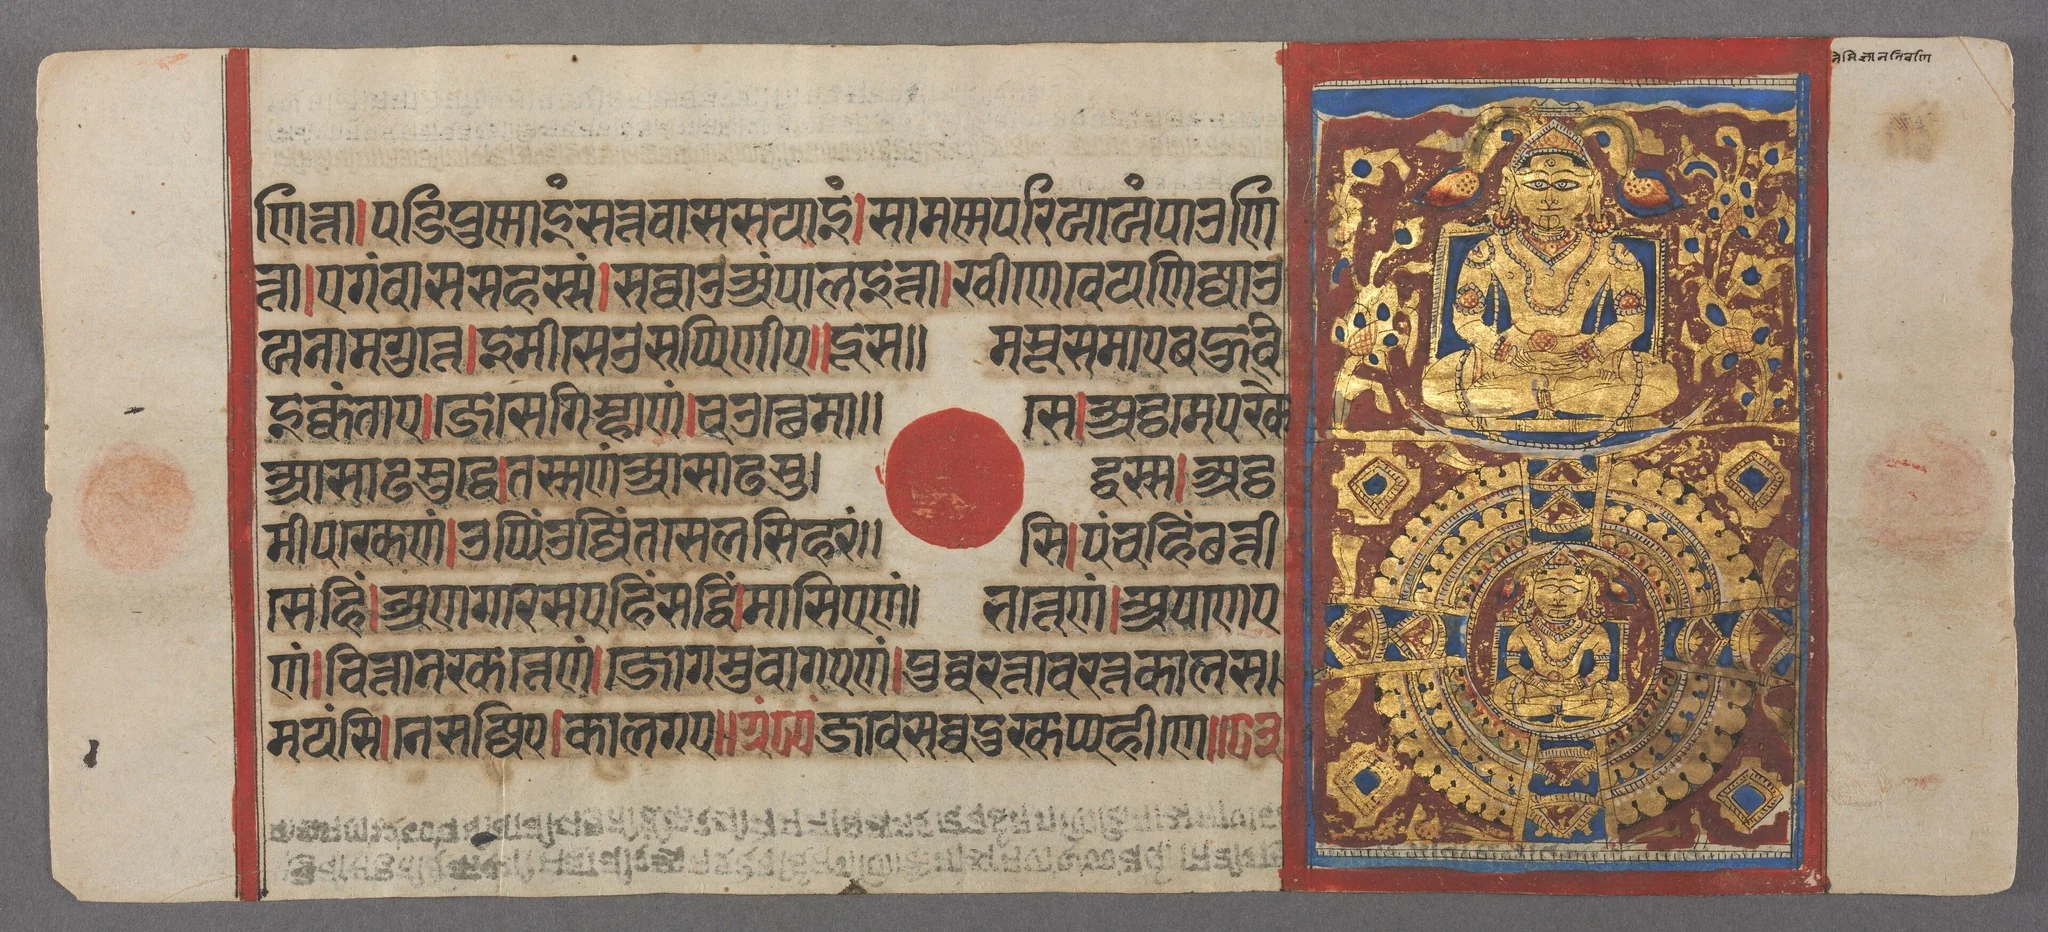 नेमिज्ञाननिर्वाण
णित्ता।पडिपुन्नाइंसत्तवाससयाइं।सामन्नपरियागंपाउणि
त्ता।एगंवाससहस्सं।सव्वाउअंपालइत्ता।खीणेवेयणिज्जाउ
यनामगुत्ते।इमीसेउसप्पिणीए॥दूस॥ मसूसमाएबहुवि
इक्कंताए।जेसेगिम्हाणं।चउत्थेमा॥ से।अट्ठमेपक्खे
आसाढसुद्धे।तस्सणंआसाढसु। द्धस्स।अट्ठ
मीपक्खेणं।उप्पिंउज्जिंतसेलसिहरं॥ सि।पंचहिंछत्ती
सेहिं।अणगारसएहिंसद्धिं।मासिएणं। भत्तेणं।अपाणए
णं।चित्तानक्खत्तेणं।जोगमुवागएणं।पुव्वरत्तावरत्तकालस।
मयंसि।नेसज्जिए।कालगए॥जावसव्वदुक्खप्पहीणे॥